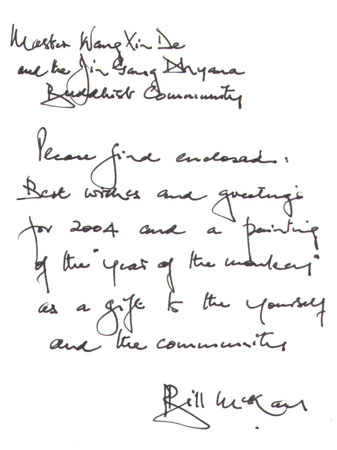 Master Wang Xin De
and the Jin Gang Dhyana
Buddhist Community
Please find enclosed:
Best wishes and greetings
for 2004 and a painting
of the "year of the monkey"
as a gift to the yourself
and the community
Bill